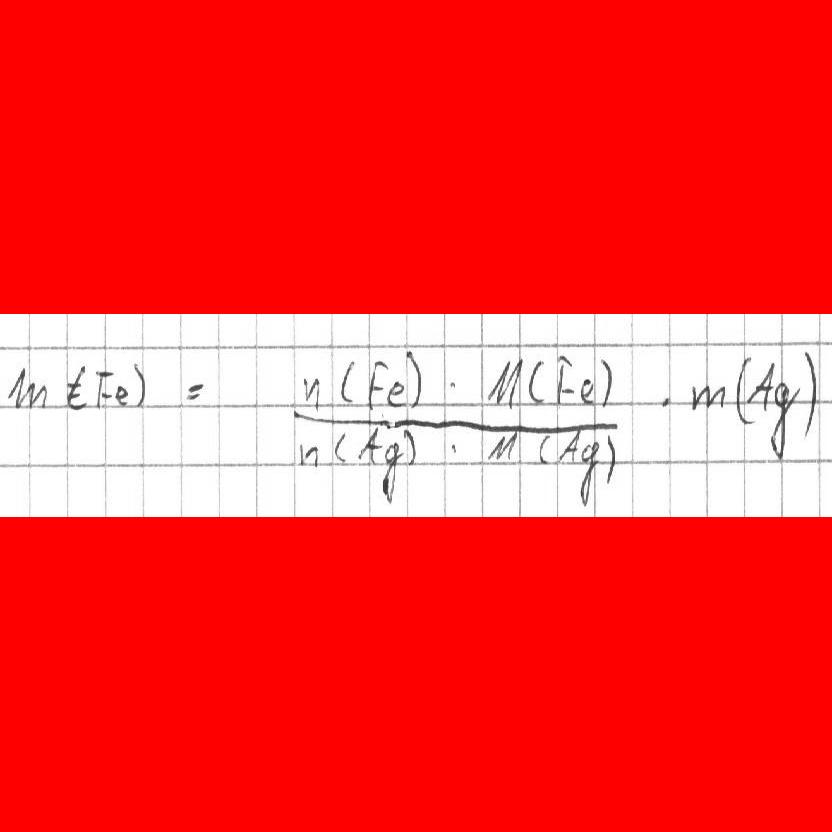 m(Fe) = \frac{n(Fe) \cdot M(Fe)}{n(Ag) \cdot M(Ag)} \cdot m(Ag)